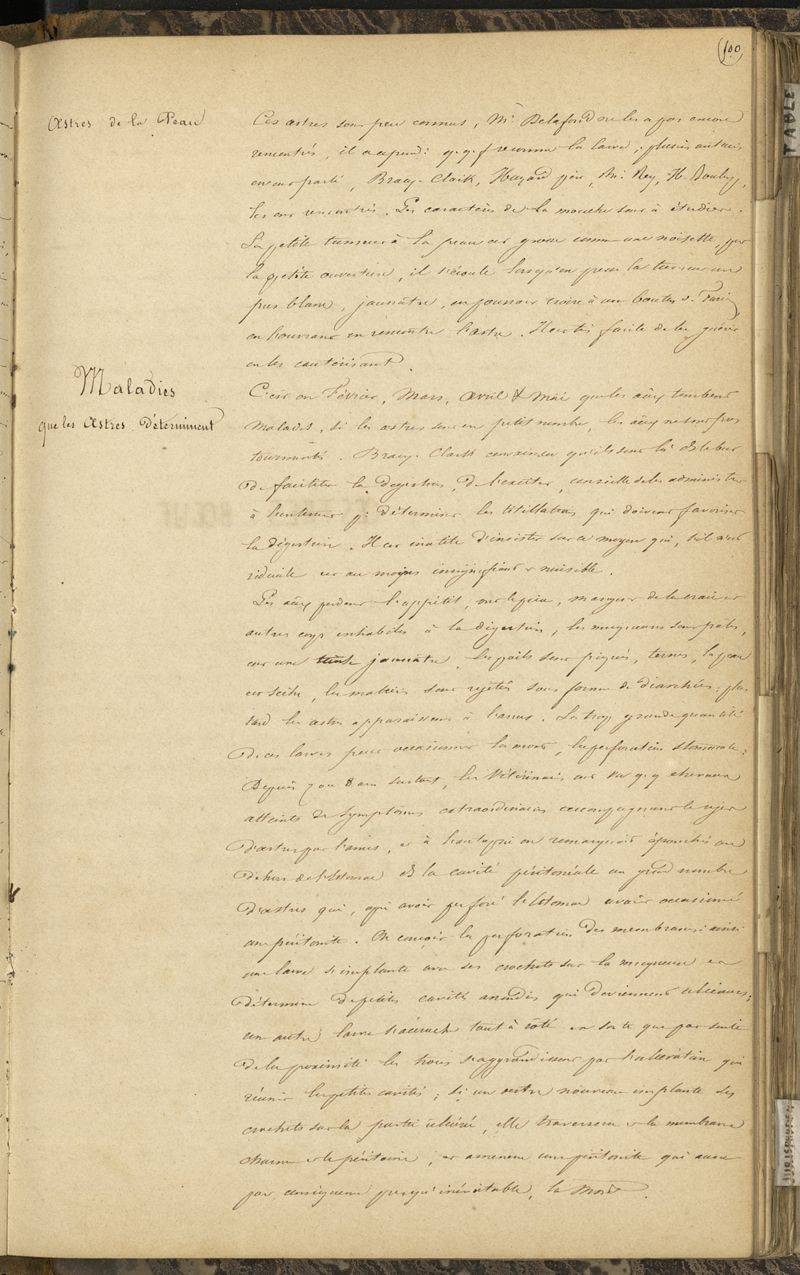 100
TABLE
Œstres de la Peau
Ces œstres sont peu connus, Mr Delafond ne les a pas encore
rencontrés, il a cepend: q.q.f reconnu la larve; plusieurs auteurs
en ont parlé, Bracy-Clark, Huzard père, Mr Rey, H. Bouley,
les ont rencontrés. Les caractères de la mouche sont à étudier.
La petite tumeur à la peau est grosse comme une noisette, par
la petite ouverture, il s'écoule lorsqu'on presse la tumeur un
pus blanc, jaunâtre, on pourrait croire à un bouton de Farcin
en l'ouvrant on rencontre l'œstre. Il est très facile de les guérir
en les cautérisant.
Maladies
que les Œstres Déterminent
C'est en Février, Mars, Avril & Mai que les aûx tombent
malades, si les œstres sont en petit nombre, les aûx ne sont pas
tourmentés. Bracy-Clark convaincu qu'ils sont là dans le but
de faciliter la digestion, de l'exciter, conseille de les administrer
à l'intérieur pr déterminer les titillations qui doivent favoriser
la digestion. Il est inutile d'insister sur ce moyen qui, s'il n'est
ridicule est au moins insignifiant & nuisible.
Les aûx perdent l'appétit, ont le pica, mangent de la craie et
autres corps inhabiles à la digestion, les muqueuses sont pâles,
ont une teinte jaunâtre, les poils sont piqués, ternes, la peau
est sèche, les matières sont rejetées sous forme de diarrhée; plus
tard les œstres apparaissent à l'anus. La trop grande quantité
de ces larves peut occasionner la mort, la perforation stomacale.
Depuis 7 ou 8 ans surtout, les Vétérinaires ont vu q.q chevaux
atteints de symptômes extraordinaires accompagnant le rejet
d'œstres par l'anus, & à l'autopsie on remarquait épanchés au
dehors de l'estomac et la cavité péritonéale un grand nombre
d'œstres qui, après avoir perforé l'estomac avaient occasionné
une péritonite. On conçoit la perforation des membranes: ainsi
une larve s'implante avec ses crochets sur la muqueuse et
détermine de petites cavités arrondies qui deviennent ulcéreuses;
un autre larve s'accroche tout à côté en sorte que par suite
de la proximité les trous s'aggrandissent par l'ulcération qui
réunit les petites cavités; si un œstre nouveau implante ses
crochets sur la partie ulcérée, elle traversera & la membrane
charnue & le péritoine, et amènera une péritonite qui aura
par conséquent presqu'inévitable, la mort.
JURISPRUDENCE